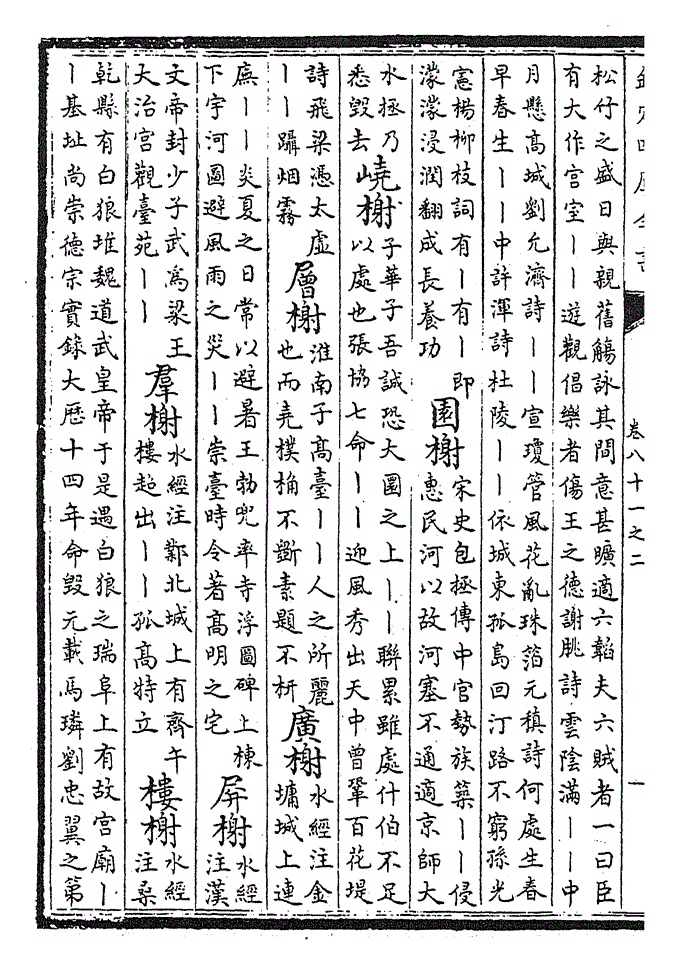 欽定四庫全書
卷八十一之二
一
松竹之盛日與親舊觴詠其間意甚曠適六韜夫六賊者一曰臣
有大作宫室丨丨遊觀倡樂者傷王之德謝朓詩雲陰滿丨丨中
月懸高城劉允濟詩丨丨宣瓊管風花亂珠箔元稹詩何處生春
早春生丨丨中許渾詩杜陵丨丨依城東孤島回汀路不窮孫光
憲楊柳枝詞有丨有丨即
濛濛浸潤翻成長養功
園榭
宋史包拯傳中官勢族築丨丨侵
惠民河以故河塞不通適京師大
水拯乃
悉毁去
嶢榭
子華子吾誠恐大圜之上丨丨聯累雖處什伯不足
以處也張協七命丨丨迎風秀出天中曾鞏百花堤
詩飛梁憑太虛
丨丨躡烟霧
層榭
淮南子高臺丨丨人之所麗
也而堯樸桷不斲素題不枅
廣榭
水經注金
墉城上連
廡丨丨炎夏之日常以避暑王勃兜率寺浮圖碑上棟
下宇河圖避風雨之災丨丨崇臺時令著高明之宅
屏榭
水經
注漢
文帝封少子武為梁王
大治宫觀臺苑丨丨
羣榭
水經注鄴北城上有齊午
樓超出丨丨孤高特立
樓榭
水經
注桑
乾縣有白狼堆魏道武皇帝于是遇白狼之瑞阜上有故宫廟丨
丨基址尚崇德宗實錄大歷十四年命毁元載馬璘劉忠翼之第